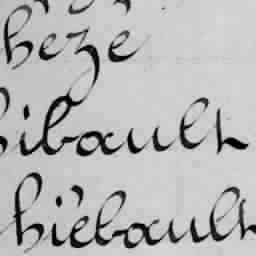 hèze
hibault
hièbault